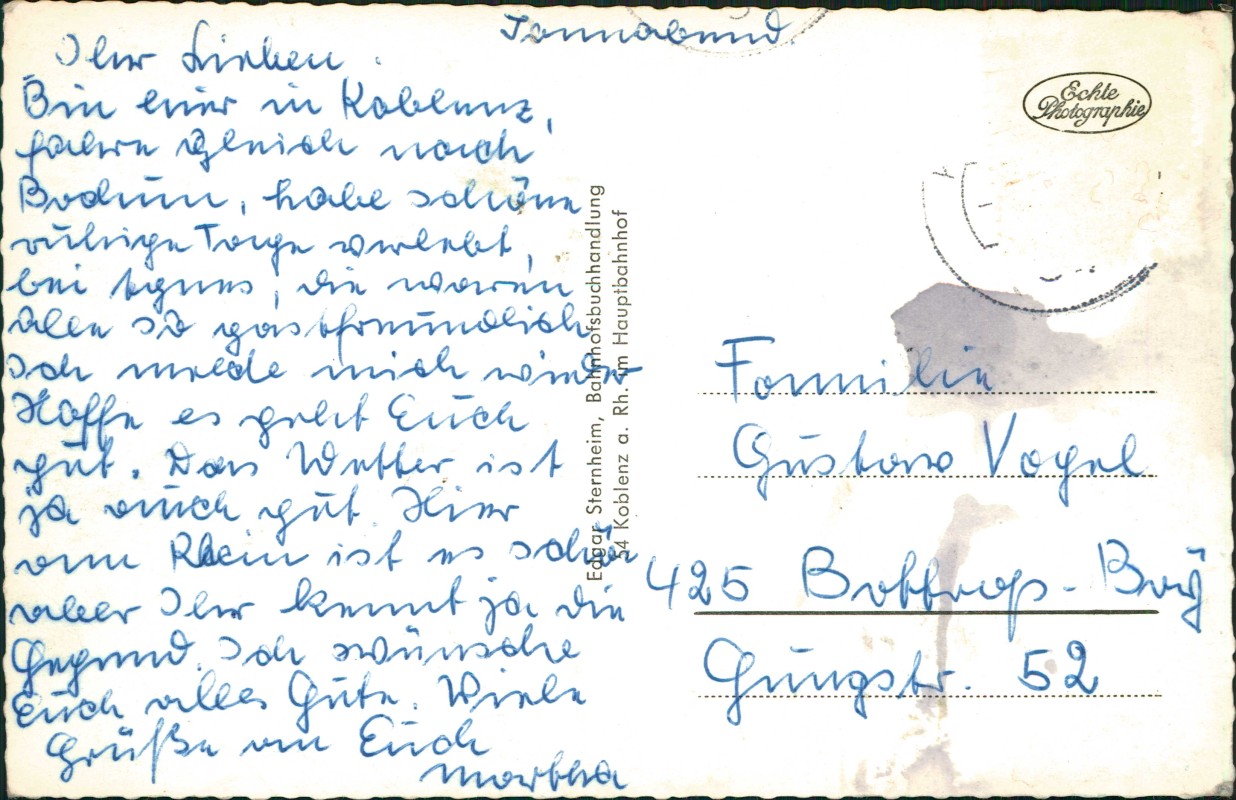 Sonnabend
Ihr Lieben.
Bin hier in Koblenz,
fahre gleich nach
Bochum, habe schöne
ruhige Tage verlebt,
bei Agnes, die waren
alle so gastfreundlich
Ich melde mich wieder
Hoffe es geht Euch
gut. Das Wetter ist
ja auch gut. Hier
am Rhein ist es schön
aber Ihr kennt ja die
Gegend. Ich wünsche
Euch alles Gute. Viele
Grüße an Euch
Martha
Edgar Sternheim, Bahnhofsbuchhandlung
54 Koblenz a. Rh. im Hauptbahnhof
Echte
Photographie
Familie
Gustav Vogel
425 Bottrop - Boy
Gungstr. 52